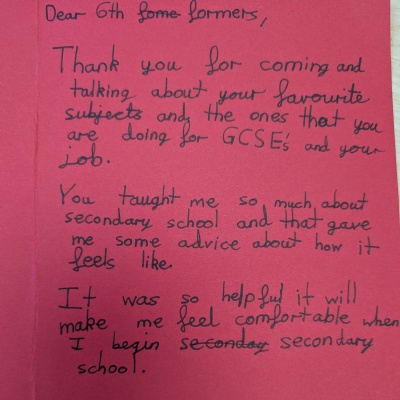 Dear 6th fome formers,
Thank you for coming and
talking about your favourite
subjects and the ones that you
are doing for GCSE's and your
job.
You taught me so much about
secondary school and that gave
me some advice about how it
feels like.
It was so helpful it will
make me feel comfortable when
I begin seconday secondary
school.